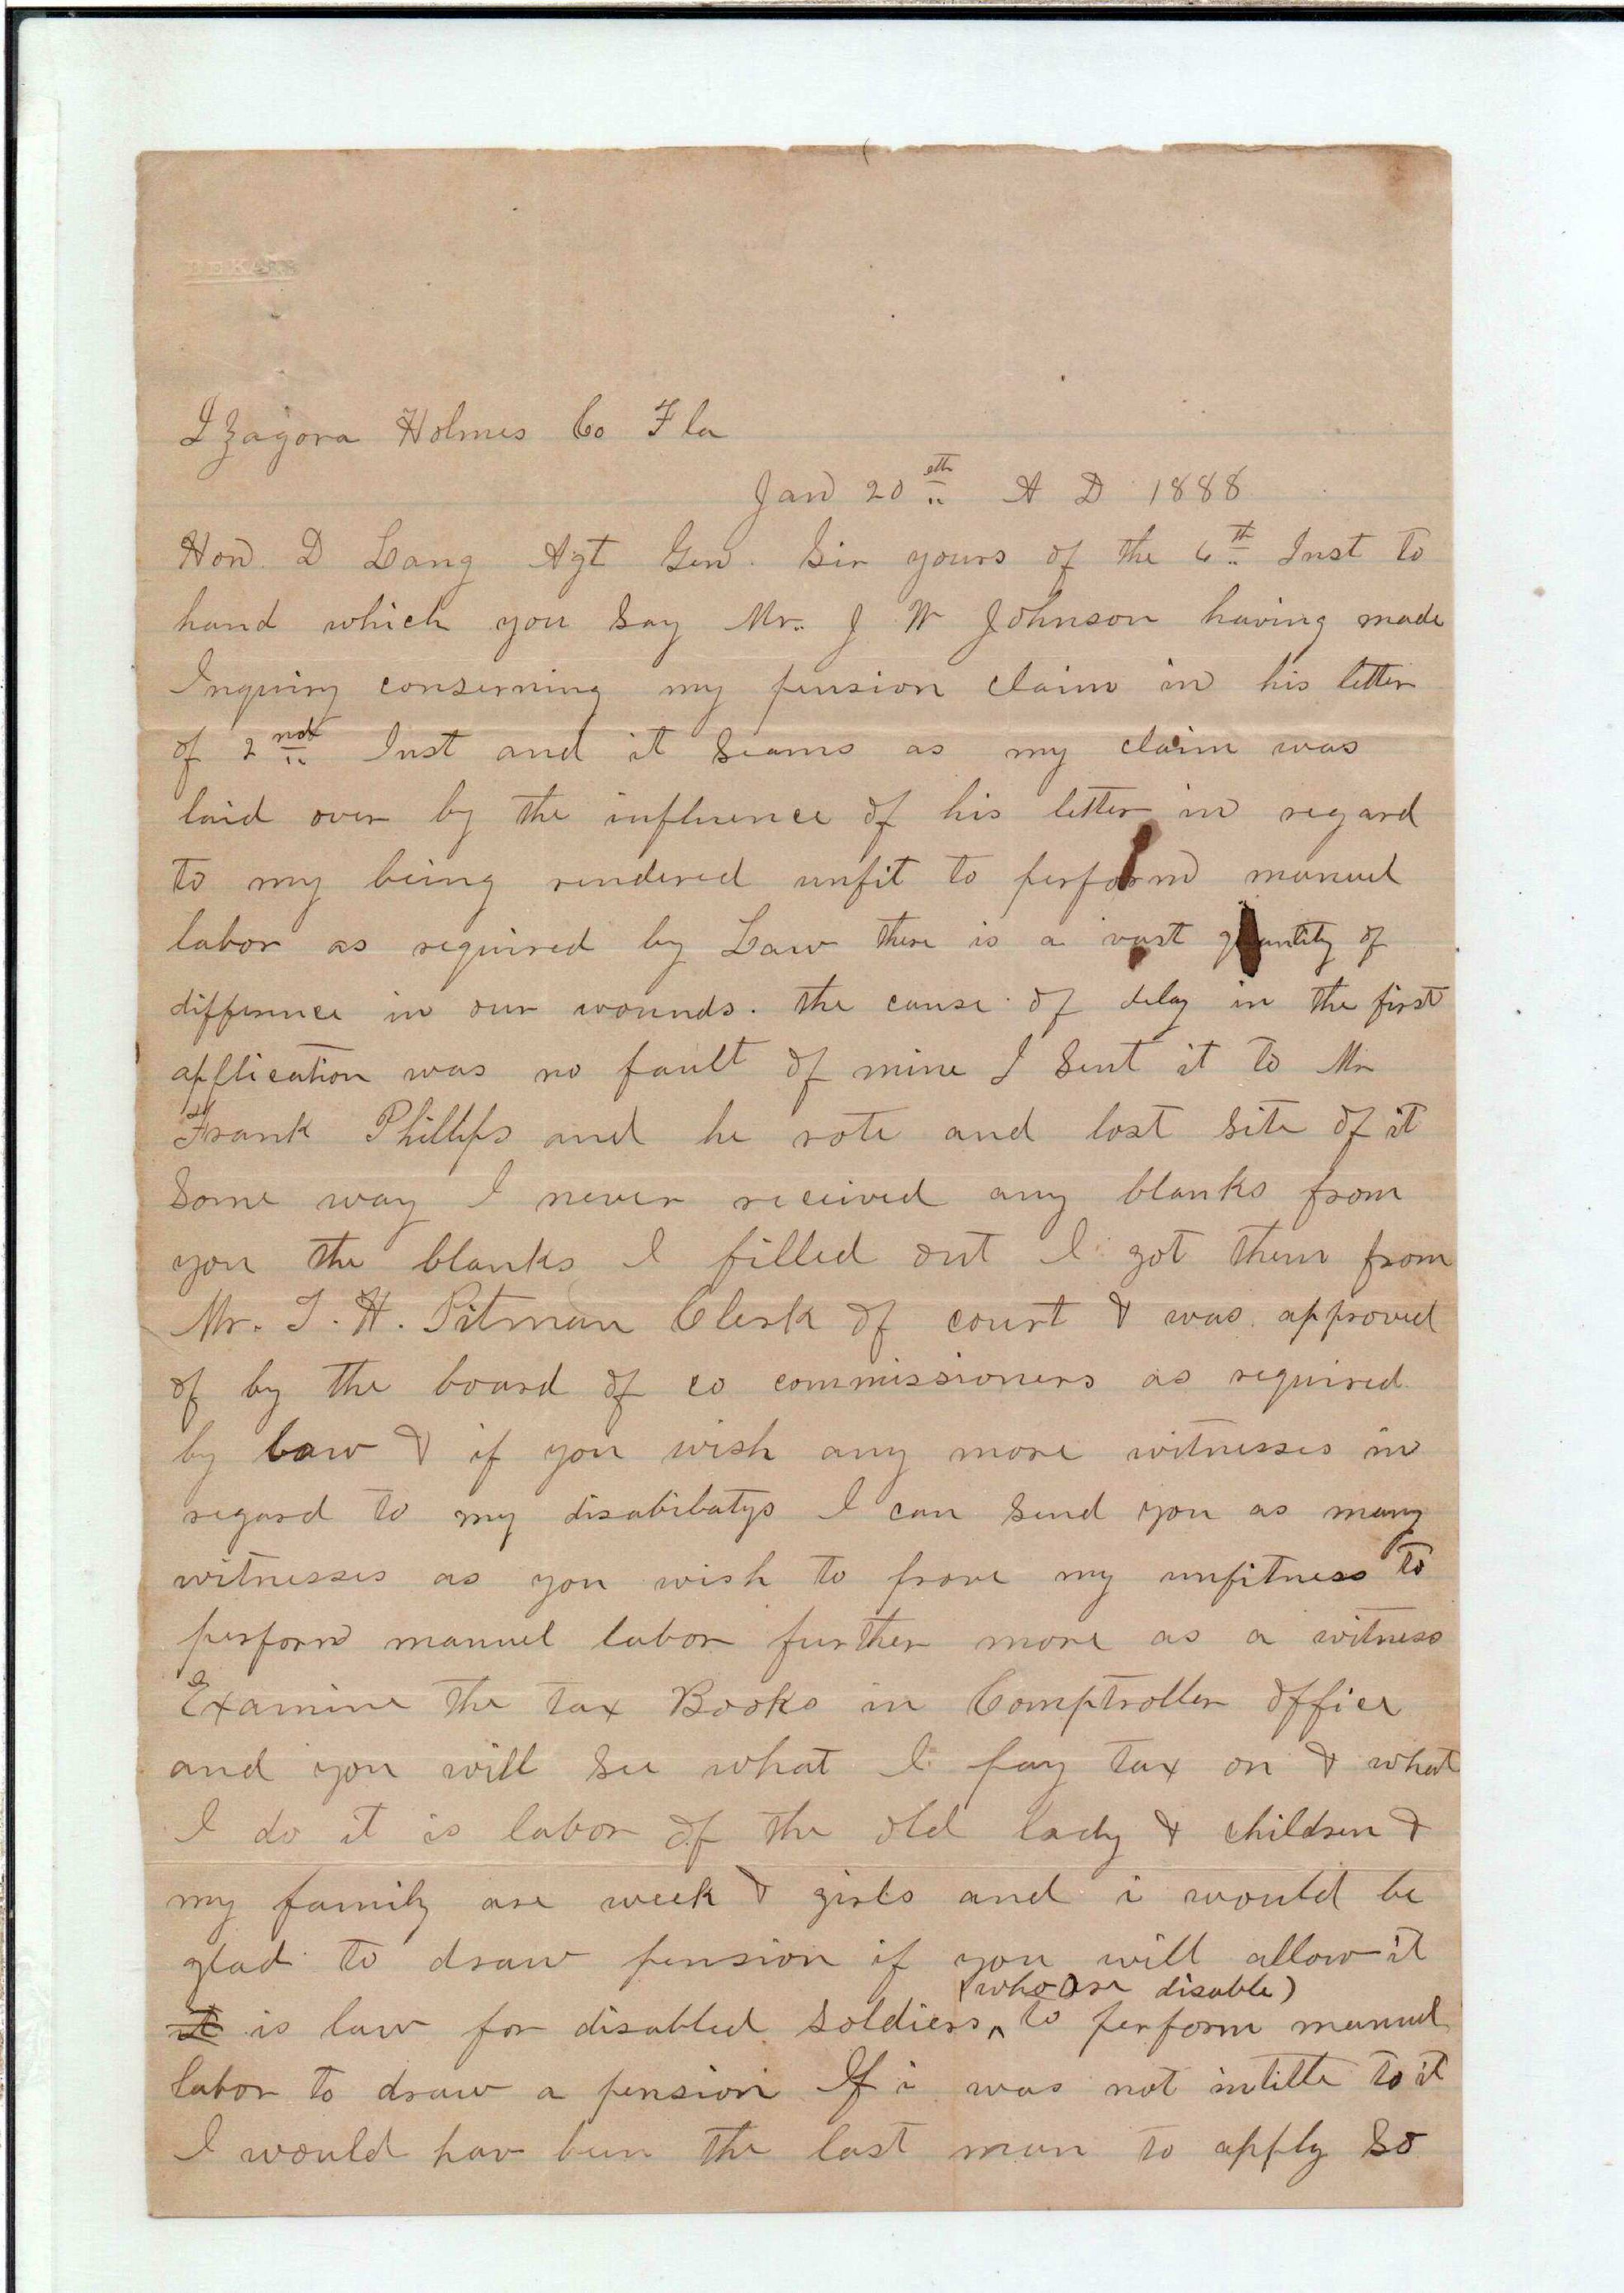 Izagora Holmes Co Fla
Jan 20eth A D 1888
Hon. D Lang Agt Gen. Sir yours of the 6th Inst to
hand which you Say Mr. J W Johnson having made
Inquiry conserning my pension claim in his letter
of 2nd Inst and it Seams as my claim was
laid over by the influence of his letter in regard
to my being rendered unfit to perform manuel
labor as required by Law there is a vast quantity of
differnce in our wounds. the cause of delay in the first
application was no fault of mine I Sent it to Mr
Frank Phillips and he rote and lost Site of it
Some way I never received any blanks from
you the blanks I filled out I got them from
Mr. J. H. Pitman Clerk of court & was approved
of by the board of co commissioners as required
by Law & if you wish any more witnesses in
regard to my disabilatys I can Send you as many
witnesses as you wish to prove my unfitness to
perform manuel labor further more as a witness
Examine the tax Books in Comptroller office
and you will See what I pay tax on & what
I do it is labor of the old lady & children &
my family are week & girls and i would be
glad to draw pension if you will allow it
(who are disable)
it is law for disabled Soldiers ^ to perform manuel
labor to draw a pension If i was not intitle to it
I would hav been the last man to apply So